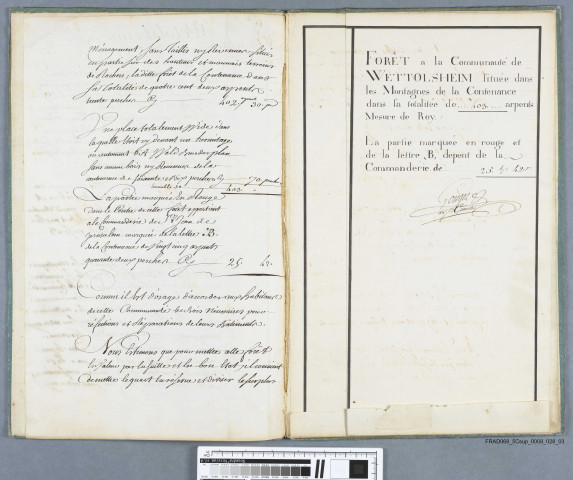 Menagement sans taillis ny
en partie sur des hauteurs et mauvais terreins
de Rochers, laditte forêt de la Contenance dans
sa totalité de quatre cent deux arpents
trente perches Cy 402. 30.
Une place totalement Vuide dans
laquelle étoit cy devant un hermitage
sans aucun bois ny
contenance de soixante et dix perches 70 perches
403.
La partie marquée en Rouge
dans le Centre de cette forêt appartient
a la Commanderie de St Jean de
Jerusalem marquée de la lettre B.
de la Contenance de Vingt cinq arpents
quarante deux perches Cy 25. 42.
Comme il est d'usage d'accorder aux habitans
de cette Communauté les Bois necessaires pour
refections et Reparations de leurs Batiments.
Nous Estimons que pour mettre cette forêt
en Valeur par la suitte et en bon Etat il convient
de mettre le quart en réserve et diviser le surplus
FORÊT a la Communauté de
WETTOLSHEIM située dans
les Montagnes de la Contenance
dans sa totalitée de 403 arpents
Mesure de Roy.
La partie marquée en rouge et
de la lettre B, depent de la
Commanderie de 25. 42.
FRAD068_5Coup_0008_028_03